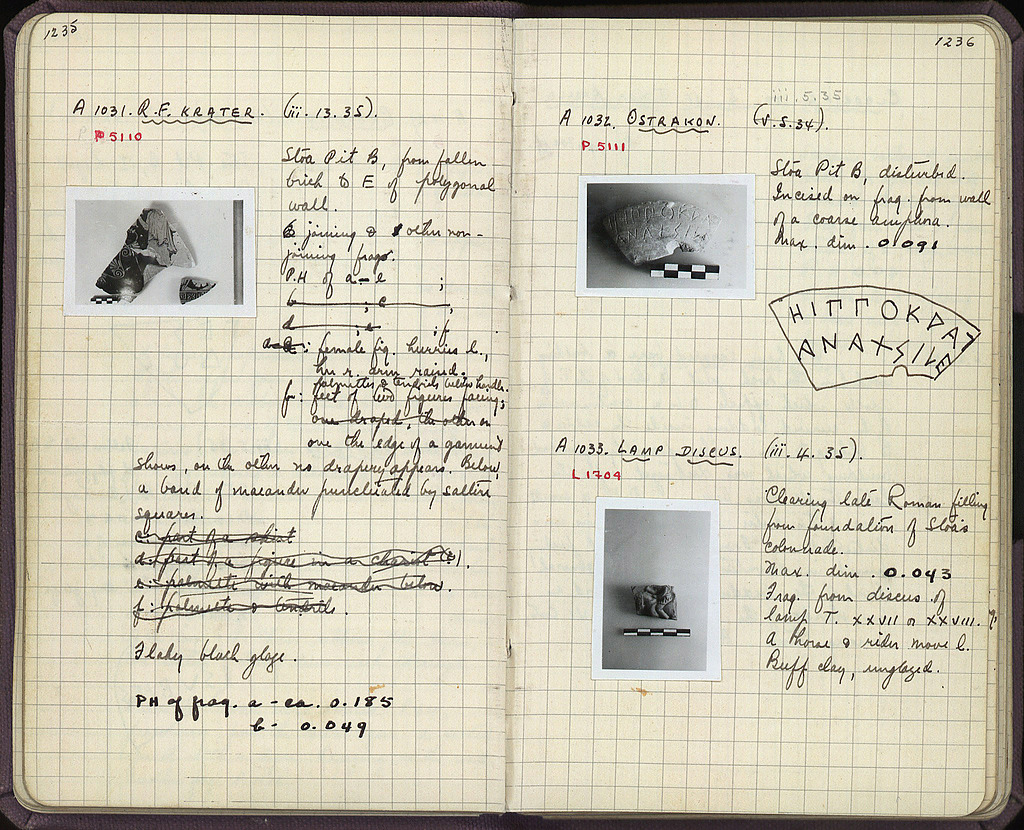 1235
A 1031. R.F. KRATER. (iii. 13. 35).
P 5110
Stoa Pit B, from fallen
brick to E of polygonal
wall.
6 joining & 1 other non-
joining frags.
P.H of a - e ;
b ; c ;
d ; e ; f
a: female fig. hurries l.,
her r. arm raised.
palmettes & tendrils below handle.
b: feet of two figures facing;
one draped, the other on
one the edge of a garment
shows, on the other no drapery appears. Below,
a band of maeander punctuated by saltire
squares.
c: part of a
d: part of a figure in a chariot (?).
e: palmette with maeander below.
f: palmette & tendrils.
Flaky black glaze.
PH of frag. a - ca. 0.185
b - 0.049
1236
iii. 5. 35
A 1032. OSTRAKON. (V. S. 34).
P 5111
Stoa Pit B, disturbed.
Incised on frag. from wall
of a coarse amphora.
Max. dim. 0.091
ΗΙΠΠΟΚΡΑΤ
ΑΝΑΧΣΙΛΕ
A 1033. LAMP DISCUS. (iii. 4. 35).
L 1704
Clearing late Roman filling
from foundation of Stoa's
colonnade.
Max. dim. 0.043
Frag. from discus of
lamp T. XXVII or XXVIII.
A horse & rider move l.
Buff clay, unglazed.